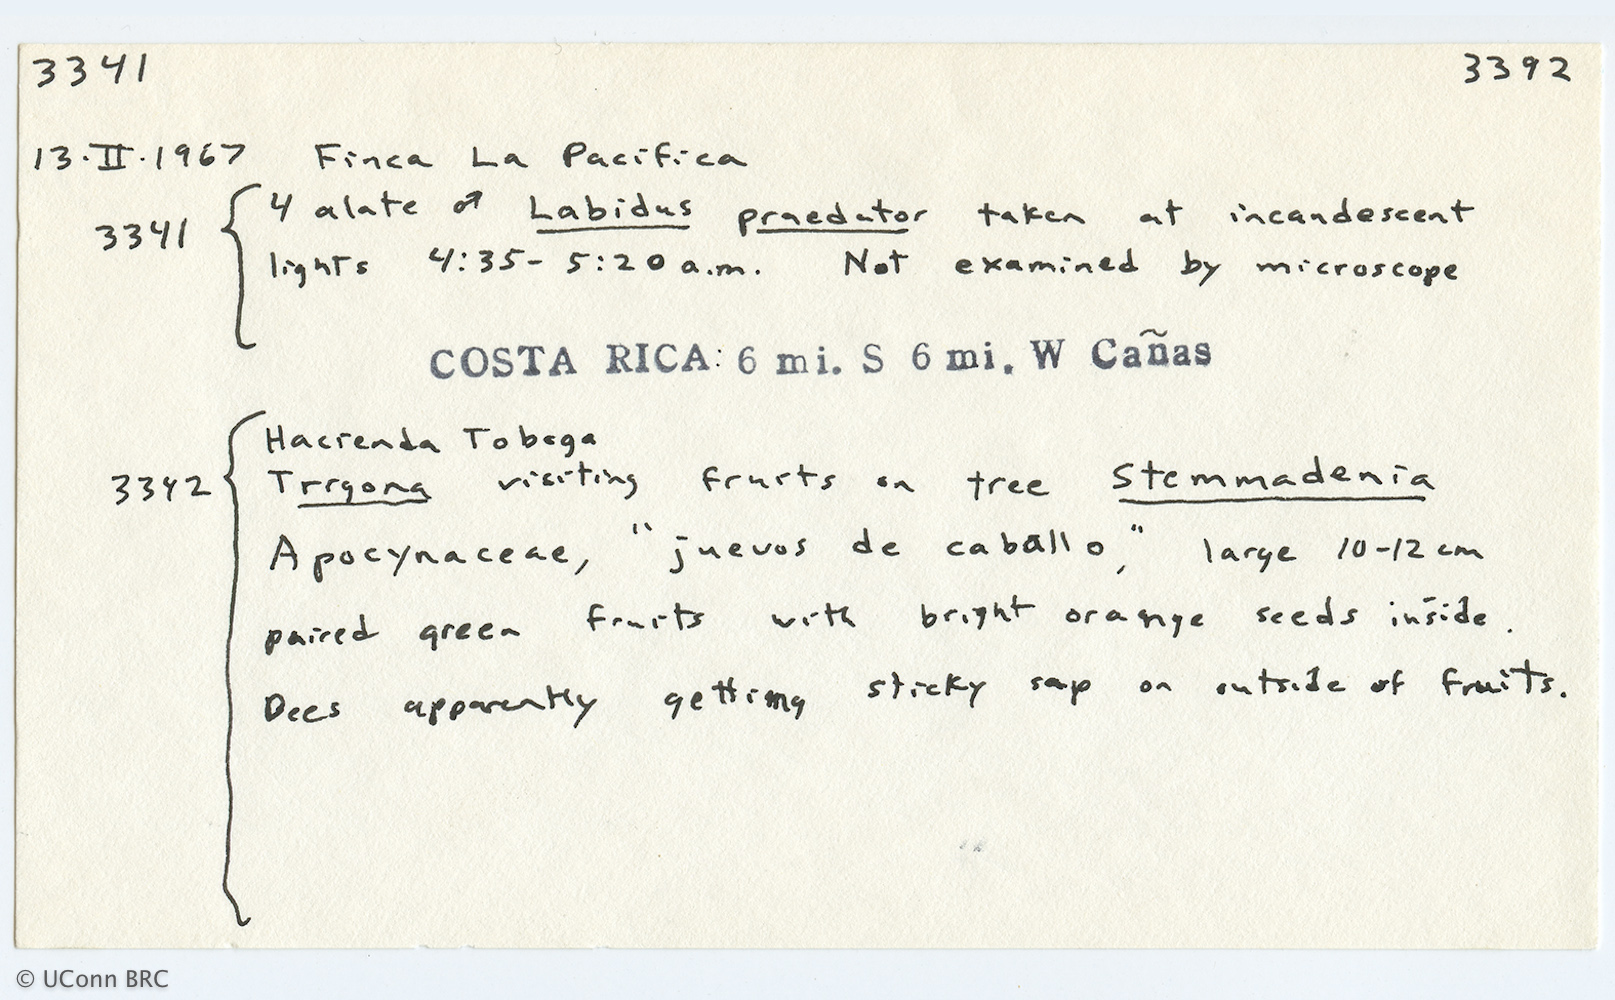 3341 3392
13·II·1967 Finca La Pacifica
3341 4 alate ♂ Labidus praedator taken at incandescent
lights 4:35-5:20 a.m. Not examined by microscope
COSTA RICA: 6 mi. S 6 mi. W Cañas
Hacienda Toboga
3342 Trigona visiting fruits on tree Stemmadenia
Apocynaceae, "juevos de caballo," large 10-12 cm
paired green fruits with bright orange seeds inside.
Bees apparently getting sticky sap on outside of fruits.
© UConn BRC